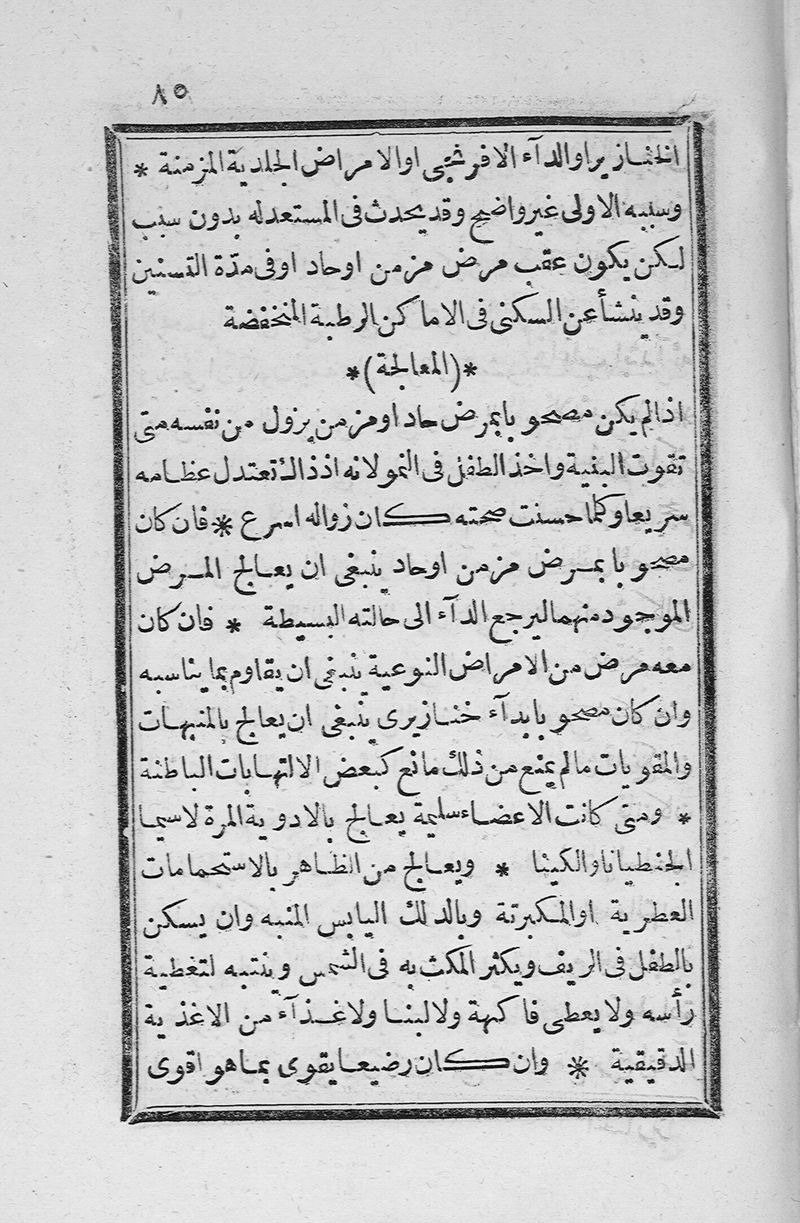 ٨٥
الخنازير او الدآء الافرنجي او الامراض الجلدية المزمنة *
وسببه الاولى غير واضح وقد يحدث فى المستعد له بدون سبب
لكن يكون عقب مرض مزمن او حاد او فى مدّة التسنين
وقد ينشأ عن السكنى فى الاماكن الرطبة المنخفضة
*(المعالجة)*
اذا لم يكن مصحوبا بمرض حاد او مزمن يزول من نفسه متى
تقوت البنية واخذ الطفل فى النمو لانه اذ ذاك تعتدل عظامه
سريعا وكلما حسنت صحته كان زواله اسرع * فان كان
مصحوبا بمرض مزمن او حاد ينبغى ان يعالج المرض
الموجود منهما ليرجع الدآء الى حالته البسيطة * فان كان
معه مرض من الامراض النوعية ينبغى ان يقاوم بما يناسبه
وان كان مصحوبا بدآء خنازيرى ينبغى ان يعالج بالمنبهات
والمقويات ما لم يمنع من ذلك مانع كبعض الالتهابات الباطنة
* ومتى كانت الاعضاء سليمة يعالج بالادوية المرة لاسيما
الجنطيانا والكينا * ويعالج من الظاهر بالاستحمامات
العطرية او المكبرتة وبالدلك اليابس المنبه وان يسكن
بالطفل فى الريف ويكثر المكث به فى الشمس وينتبه لتغطية
رأسه ولا يعطى فاكهة ولا لبنا ولا غذآء من الاغذية
الدقيقية * وان كان رضيعا يقوى بما هو اقوى